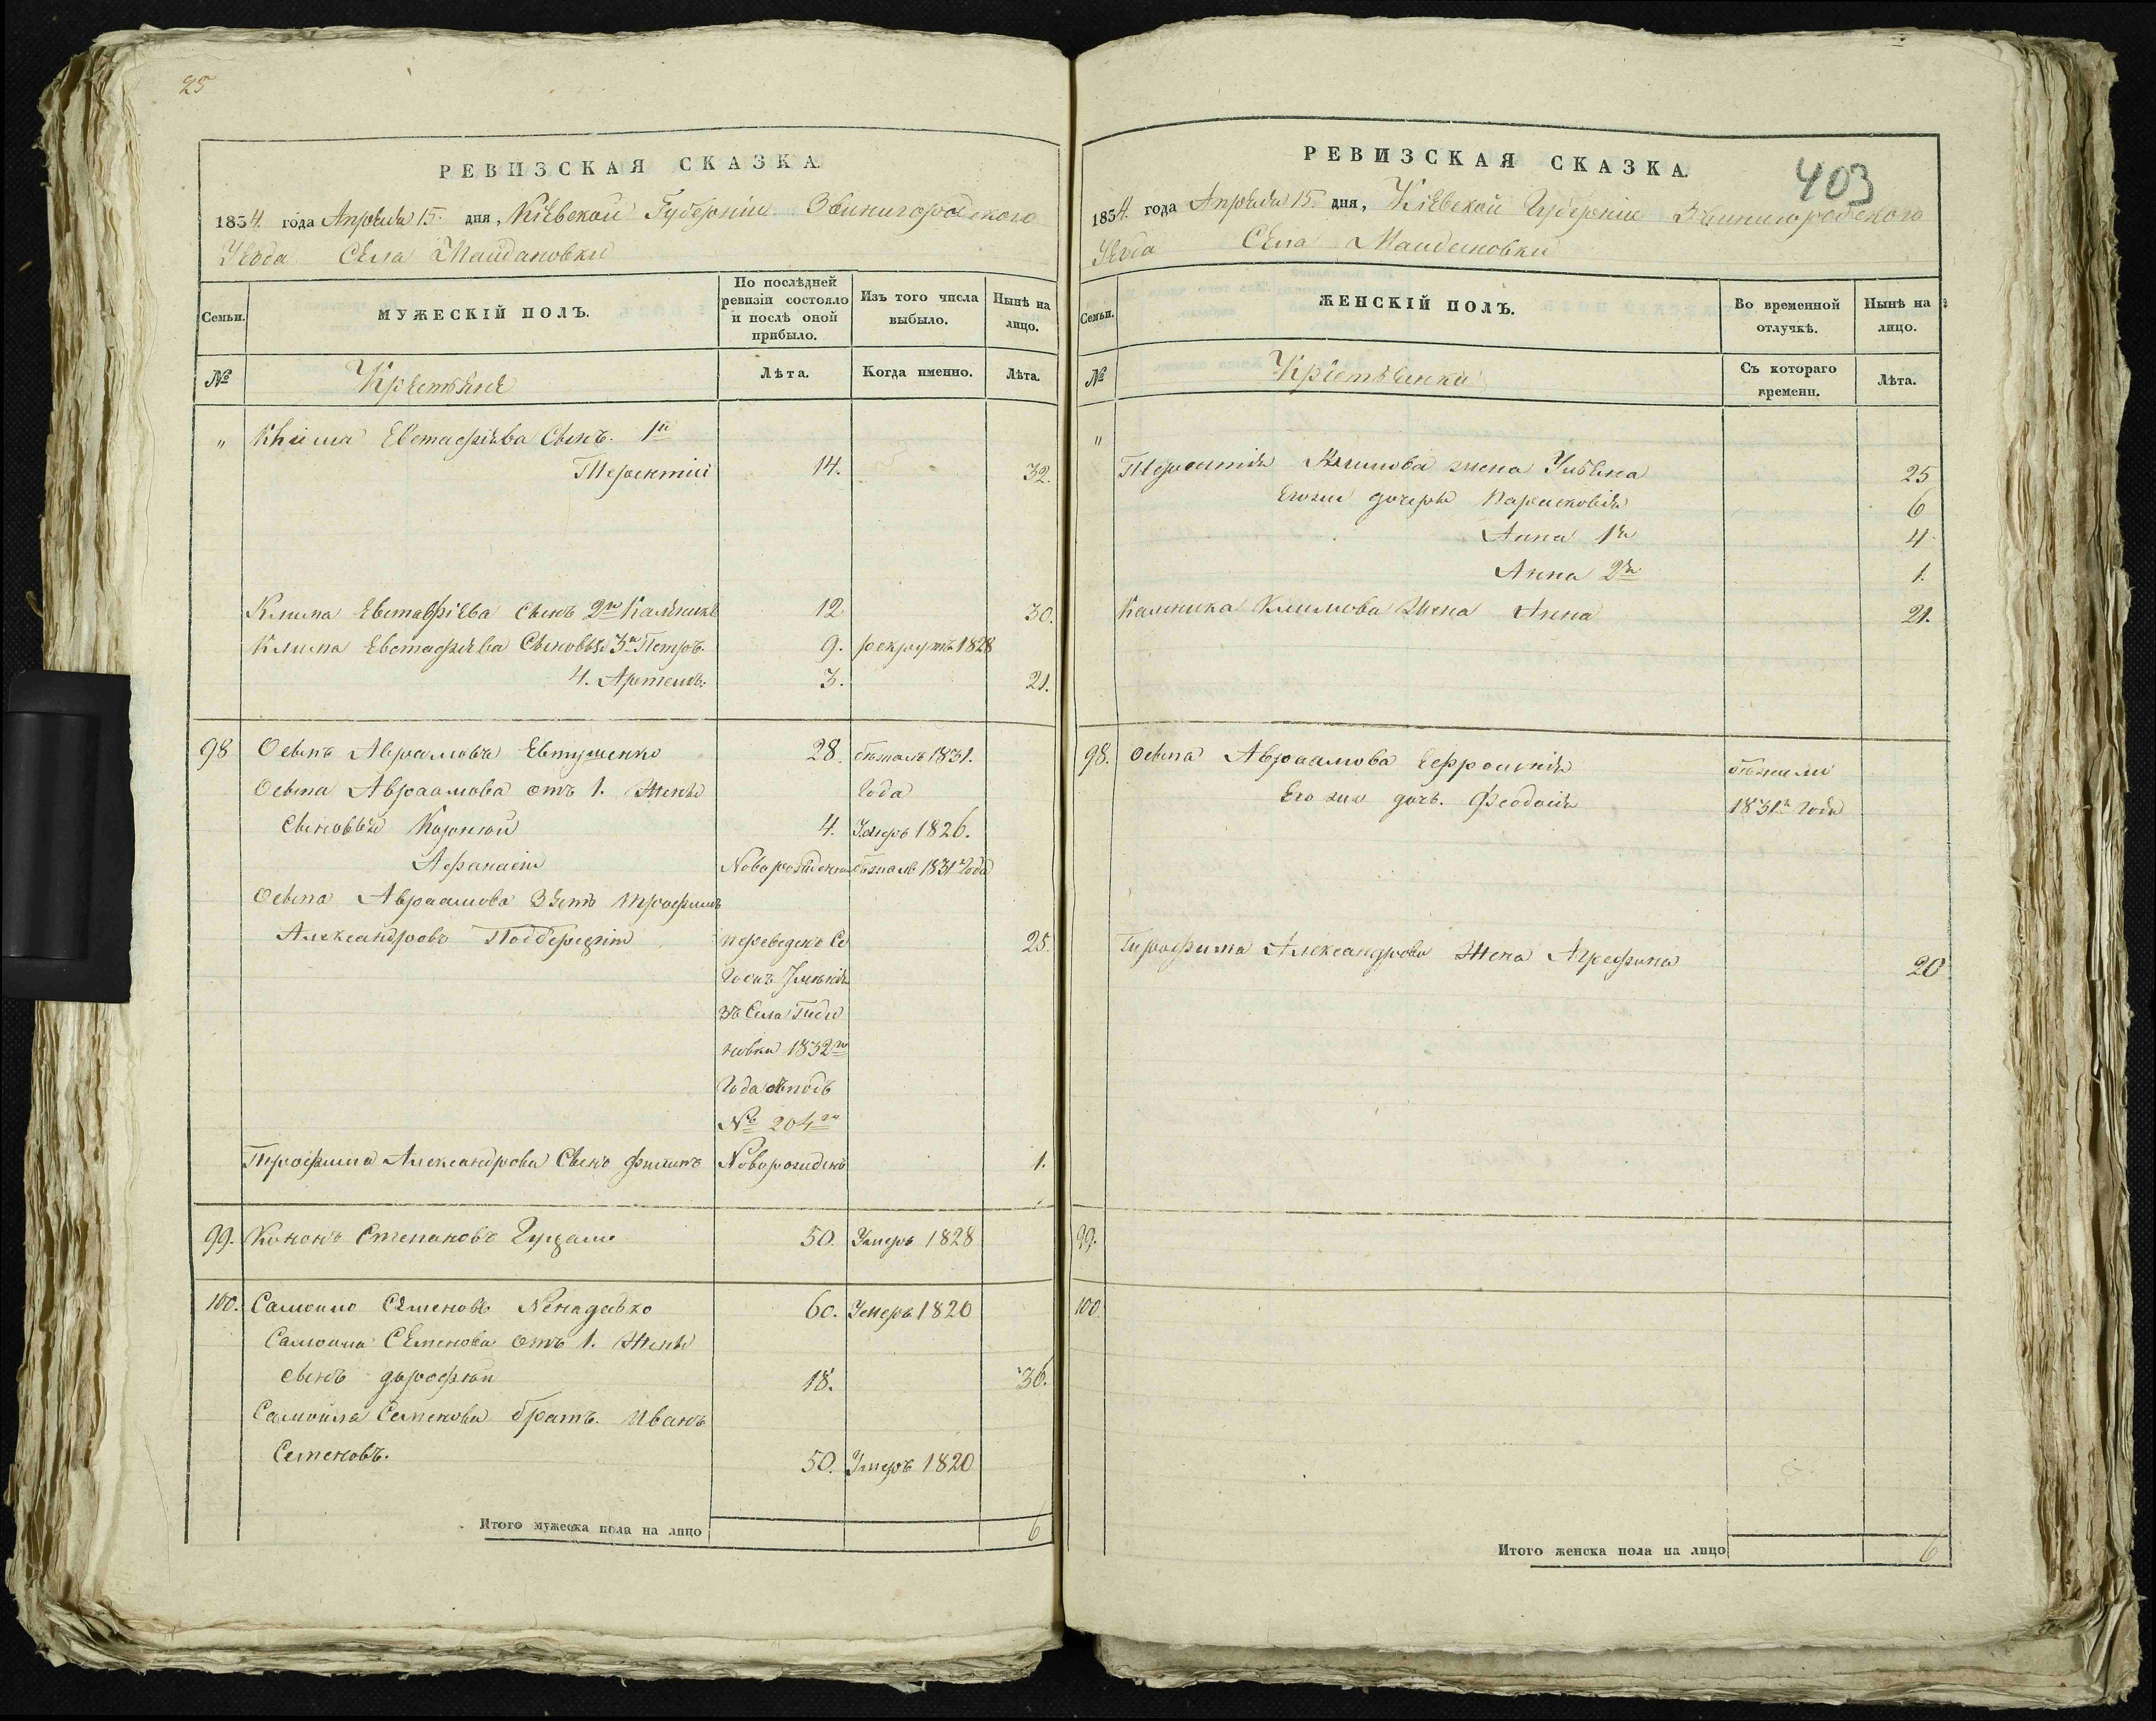 25
РЕВИЗСКАЯ СКАЗКА
1834. года Апрѣля 15. дня, Кіевской Губерніи Звинигородского
Уезда Села Майдановки
Семьи.
МУЖЕСКІЙ ПОЛЪ.
По послѣдней ревизіи состояло и послѣ оной прибыло.
Изъ того числа выбыло.
Нынѣ на лицо.
№
Крестьяне
Лѣта.
Когда именно.
Лѣта.
„ Клима Евстафіева Сынъ. 1й
Терентій 14. 32.
Клима Евстафіева сынъ 2й Каленикъ 12 30.
Клима Евстафіева Сыновья 3й Петръ. 9. рекрутъ 1828
4. Артемъ. 3. 21.
98 Осипъ Аврамовъ Евтушенко 28. бѣжалъ 1831.
Осипа Авраамова отъ 1. жены Года
Сыновья Корнѣй 4. Умеръ 1826.
Афанасій Новорожденный бѣжалъ 1831 Года
Осипа Авраамова Зять Трофимъ
Александровъ переведенъ Се 25.
новки 1832го
Года подъ
№ 204м
Трофима Александрова Сынъ Филипъ Новорожденъ 1.
99. Кононъ Степановъ 50. Умеръ 1828
100. Самоило Семеновъ Ненадько 60. Умеръ 1820
Самоила Семенова отъ 1. жены
сынъ дорофей 18. 36.
Самоила Семенова братъ. Иванъ
Семеновъ. 50. Умеръ 1820
Итого мужеска пола на лицо 6
РЕВИЗСКАЯ СКАЗКА.
403
1834. года Апрѣля 15. дня, Кіевской Губерніи Звинигородского
Уезда Села Майдановки
Семьи.
ЖЕНСКІЙ ПОЛЪ.
Во временной отлучкѣ.
Нынѣ на лицо.
№
Крестьянки
Съ котораго времени.
Лѣта.
„
Терентія Климова жена Ульяна 25
Егоже дочери Парасковія 6
Анна 1я 4
Анна 2я 1.
Каленика Климова Жена Анна 21.
98. Осипа Авраамова Ефросинія бѣжали
Его же дочь. Феодосія 1831го Года
Трофима Александрова Жена Агрефина 20
99.
100
Итого женска пола на лицо 6